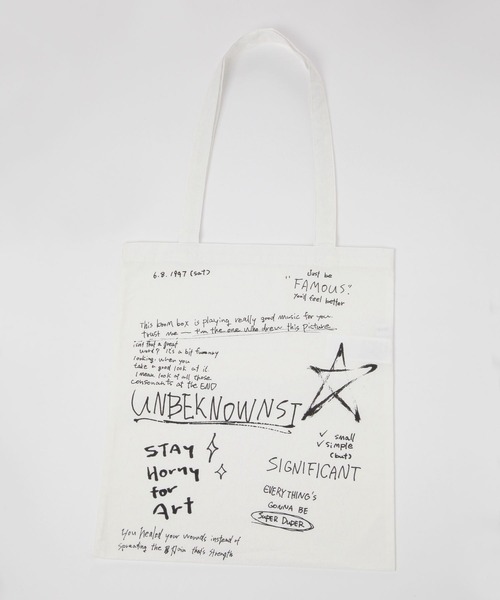 6.8.1997 (sat)
Just be
"FAMOUS"
You'll feel better
This boom box is playing really good music for you
trust me — I'm the one who drew this picture.
isn't that a great
word? It's a bit funny
looking when you
take a good look at it
I mean look at all those
consonants at the END
UNBEKNOWNST
✓ small
✓ simple
(but)
SIGNIFICANT
STAY
Horny
for
Art
EVERYTHING'S
GONNA BE
SUPER DUPER
You healed your wounds instead of
spreading the pain that's strength